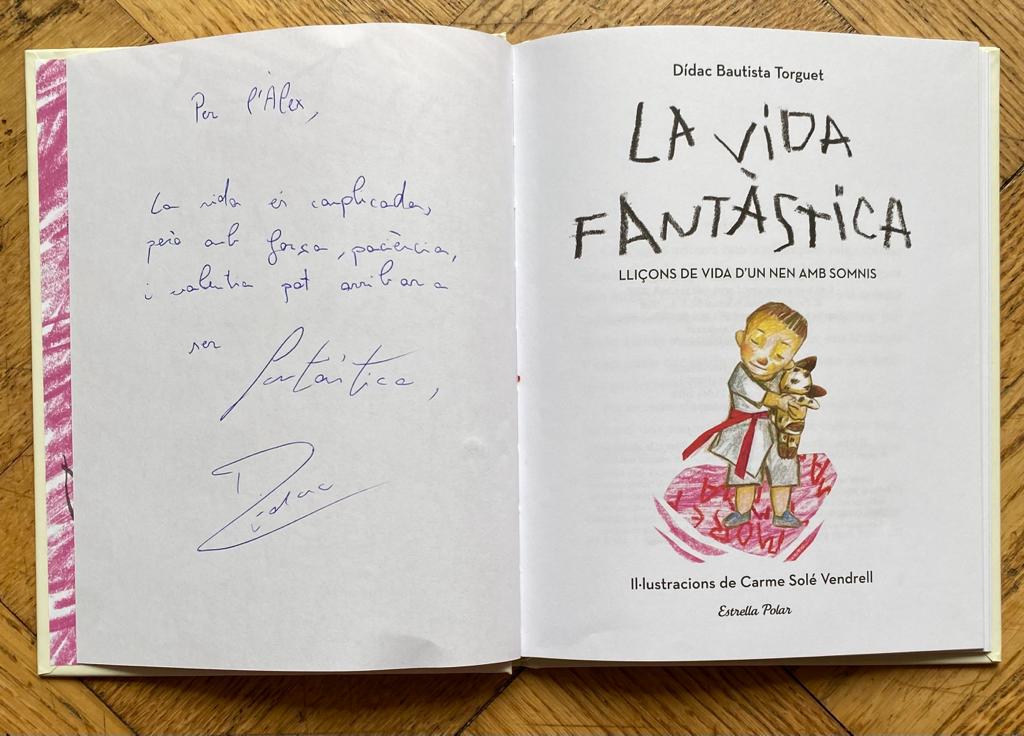 Per l'Àlex,
La vida és complicada,
però amb força, paciència,
i valentia pot arribar a
ser fantàstica,
Dídac
Dídac Bautista Torguet
LA ViDA
FANTÀSTiCA
LLIÇONS DE VIDA D'UN NEN AMB SOMNIS
Il·lustracions de Carme Solé Vendrell
Estrella Polar